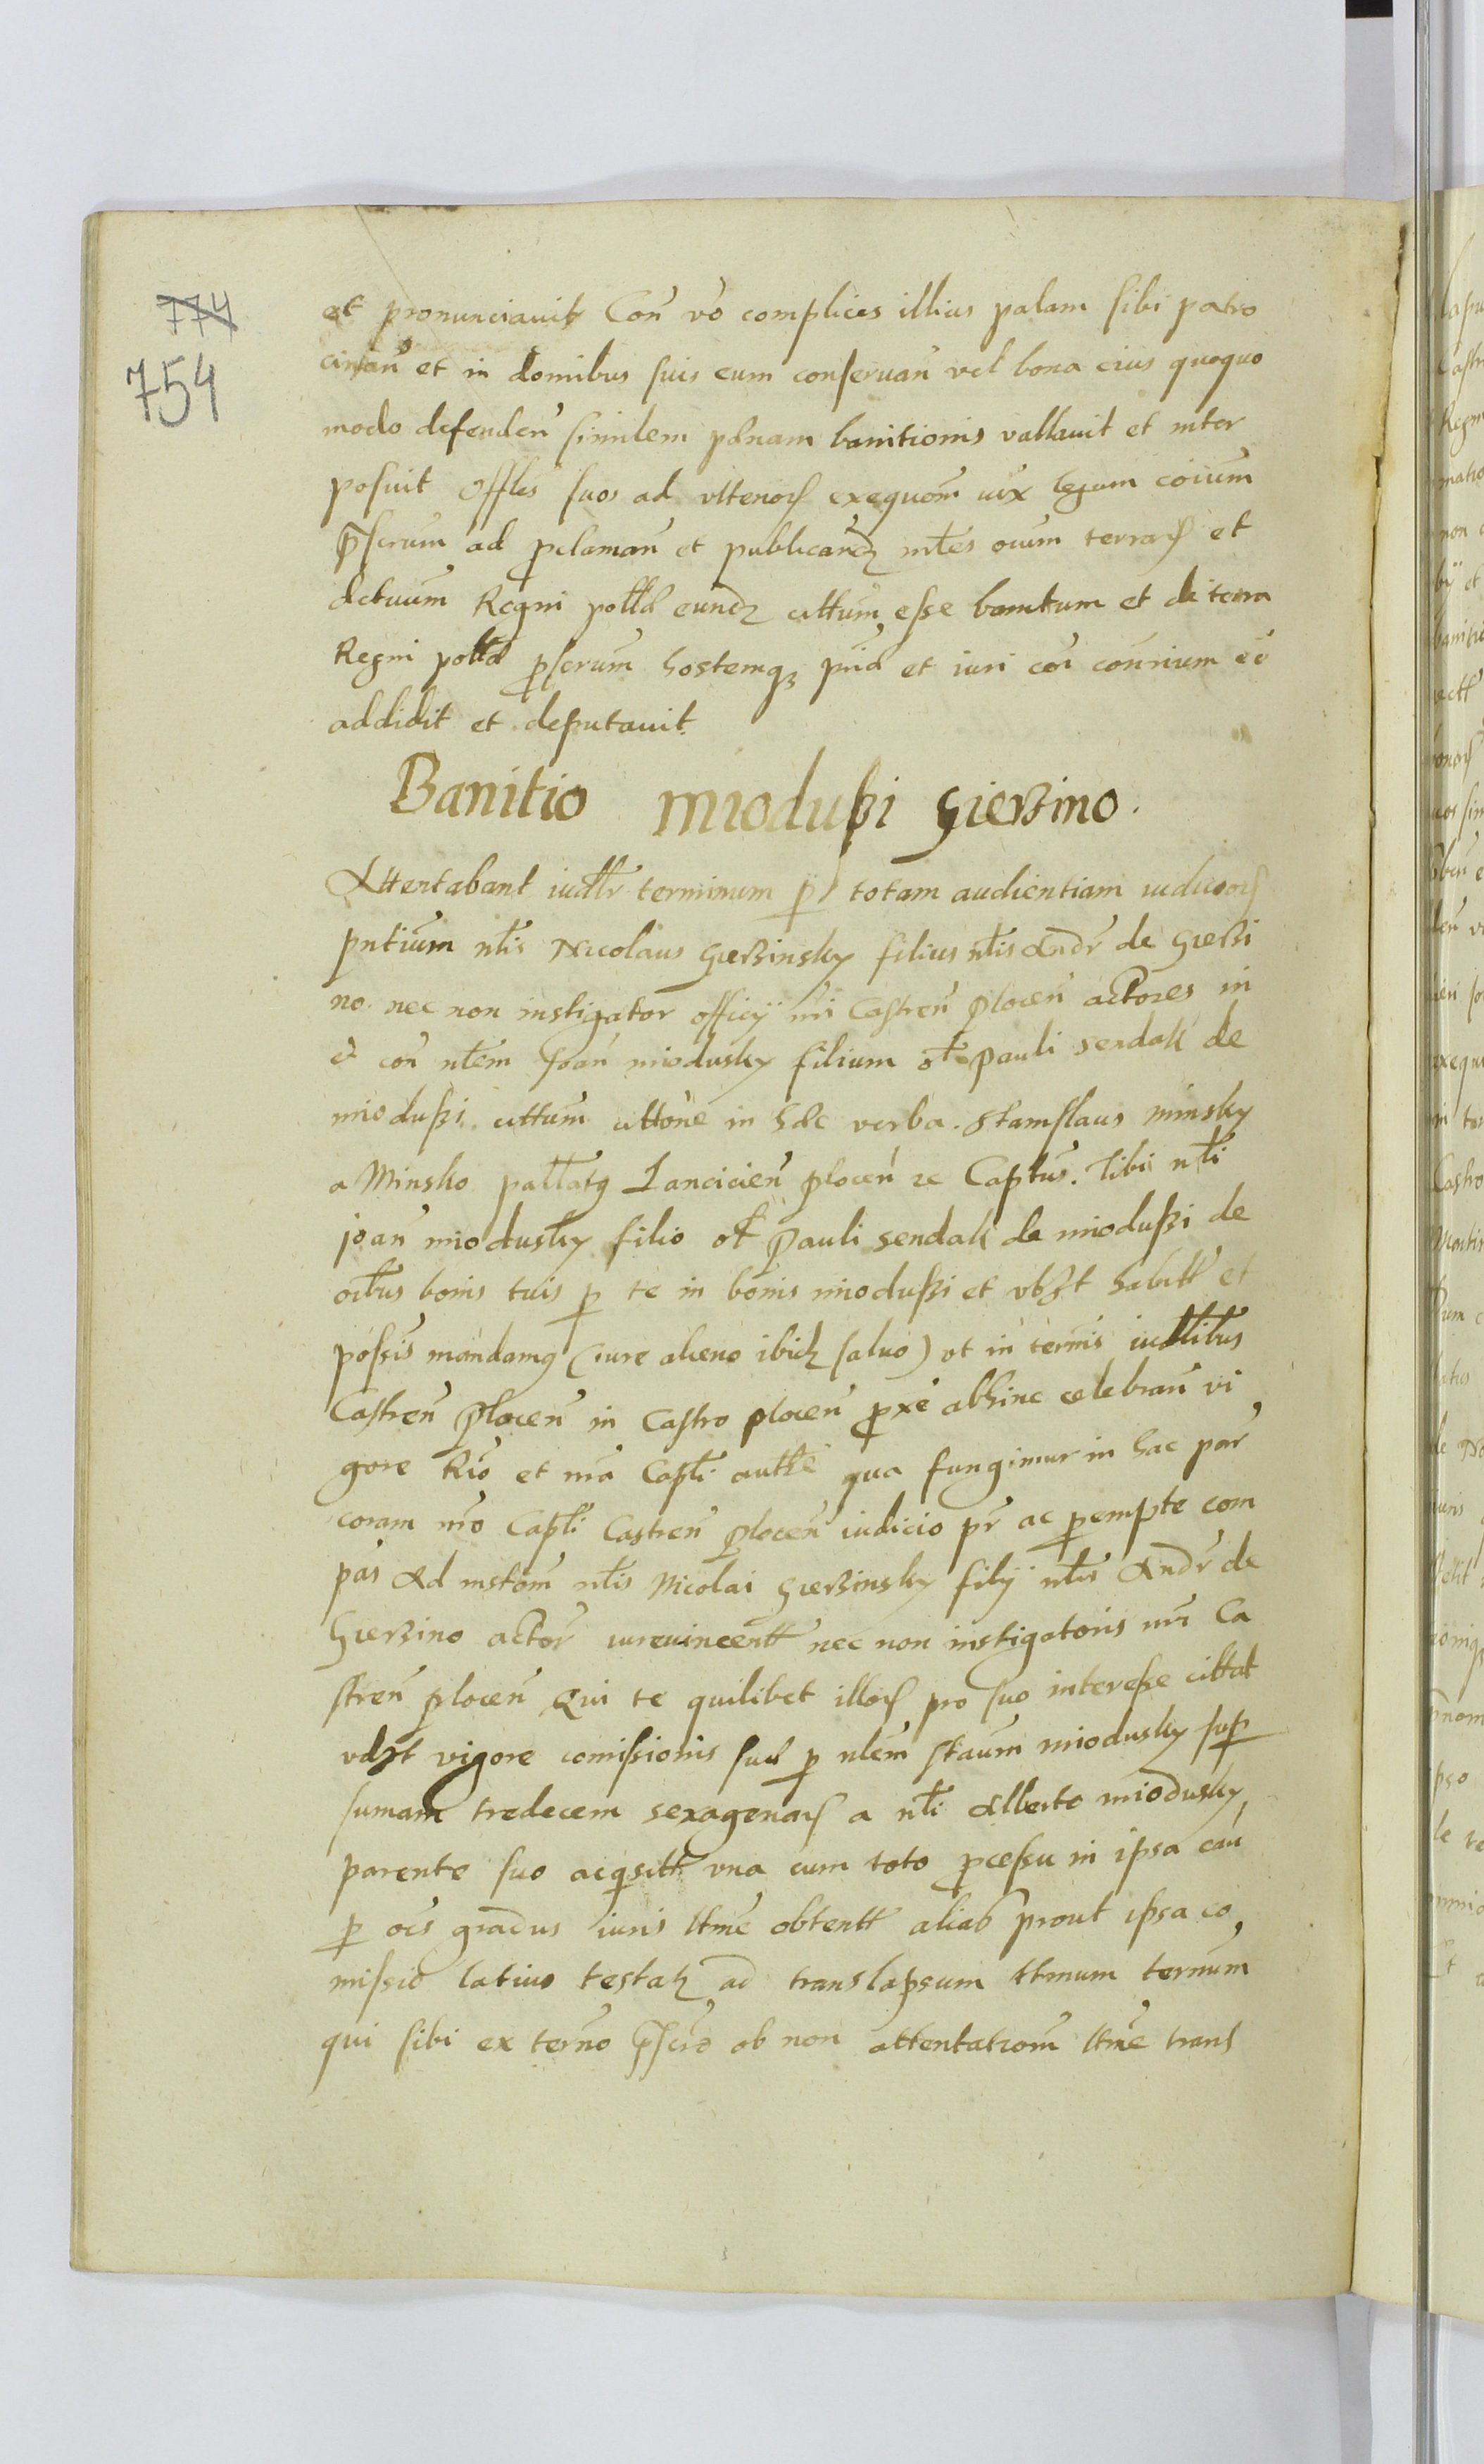 774
754
et pronunciavit Con vo complices illius palam sibi patro
cinan et in domibus suis eum conservan vel bona eius quoquo
modo defenden similem pœnam banitionis vallavit et inter
posuit Offles suos ad ulteriorem exequom iux legum coium
prscrum ad proclaman et publicand mles oium terrarum et
dctuum Regni pollæ eundem cittum esse banitum et de terra
Regni pollæ proscrum hostemque priæ et iuri coi conrium ee
addidit et deputavit.
Banitio Mioduszi Gierzino.
Attentabant iudlr terminum per totam audientiam iudiciorum
pntium nlis Nicolaus Gierzinsky filius nlis Andr de Gierzi
no nec non instigator officij nri Castren Plocen actores in
et con nlem Joan miodusky filium ol Pauli sendak de
mioduszi cittum cittone in hæc verba. Stanislaus minsky
a Minsko pallatus Lancicien plocen zc Captus. Tibi nli
joan miodusky filio ol Pauli sendak de mioduszi de
oibus bonis tuis per te in bonis mioduszi et ubilt habitt et
possis mandamus (iure alieno ibidem salvo) ut in termis iudlibus
Castren Plocen in Castro plocen proxe abhinc celebran vi
gore Rio et nra Capli authe qua fungimur in hac par
coram nro Capli Castren Plocen iudicio pr ac peremptе com
pas Ad instom nlis Nicolai Gierzinsky filij nlis Andr de
Gierzino actor iurevincentt nec non instigatoris nri Ca
stren plocen Qui te quilibet illorum pro suo interesse cittat
vdlt vigore comissionis suæ per nlem staum miodusky sup
sumam tredecem sexagenarum a nli Alberto miodusky
parente suo acquisitt una cum toto processu in ipsa cau
per oes gradus iuris ltme obtentt alias prout ipsa co
missio latius testatur ad translapsum ltmum ternum
qui sibi ex terno prscro ob non attentatiom ltme trans